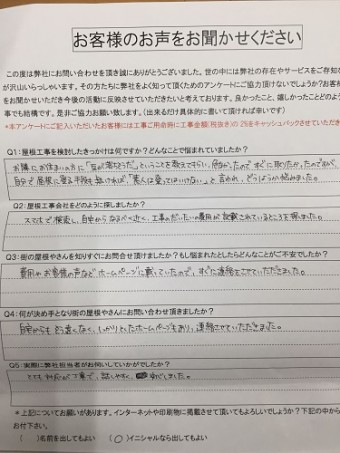 お客様のお声をお聞かせください
この度は弊社にお問い合わせを頂き誠にありがとうございます。世の中には弊社の存在やサービスをご存知
が沢山いらっしゃいます。その方たちに弊社をよく知って頂くためのアンケートにご協力頂けないでしょうか?お客様
をお聞かせいただき今後の活動に反映させていただきたいと考えております。良かったこと、嬉しかったことどのよう
事でも結構です。是非ご協力お願い致します。(出来るだけ具体的に書いて頂ければ幸いです)
*本アンケートにご記入いただいたお客様には工事ご用命時に工事金額(税抜き)の 2%をキャッシュバックさせていただき
Q1:屋根工事を検討したきっかけは何ですか?どんなことで悩まれていましたか?
お隣にお住まいの方に「瓦が落ちそうだ」ということを教えてもらい、
自分で屋根に登る手段も無ければ、「素人は登ってはいけない」と言われ、どうしようか悩みました。
Q2:屋根工事会社をどのように探しましたか?
スマホで検索し、自宅から なるべく近く、工事のだいたいの費用が記載されているところを探しました。
Q3:街の屋根やさんを知りすぐにお問合せ頂けましたか?もし悩まれたとしたらどんなことがご不安でしたか?
費用やお客様の声など ホームページに載っていたので、すぐに連絡をさせていただきました。
Q4:何が決め手となり街の屋根やさんにお問い合わせ頂きましたか?
自宅からも 遠くなく、しっかりとしたホームページもあり、連絡させていただきました。
Q5:実際に弊社担当者がお伺いしていかがでしたか?
とても対応が丁寧で、話しやすく、
*上記についてお願いがあります。インターネットや印刷物に掲載させて頂いてもよろしいでしょうか?下記の中から
お付下さい。
( )名前を出してもよい (○)イニシャルなら出してもよい